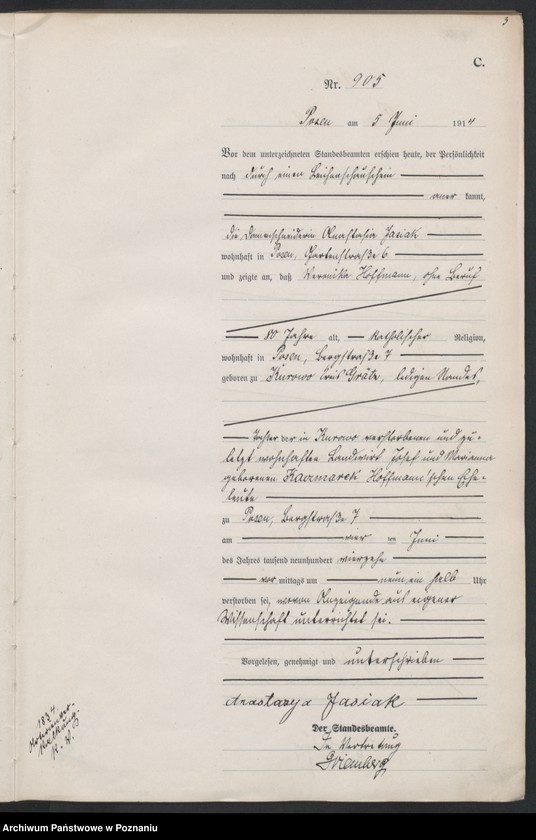 3
C.
Nr. 905
Posen am 5 Juni 1914
Vor dem unterzeichneten Standesbeamten erschien heute, der Persönlichkeit
nach durch einen Leichenschauschein
aner kannt,
die Damenschneiderin Anastasia Jasiak
wohnhaft in Posen, Gartenstraße 6
und zeigte an, daß Veronika Hoffmann, ohne Beruf
80 Jahre alt, katholischer Religion,
wohnhaft in Posen, Bergstraße 7
geboren zu Kurowo Kreis Grätz, ledigen Standes,
Tochter der in Kurowo verstorbenen und zu-
letzt wohnhaften Landwirt Josef und Marianna
geborenen Kaczmarek Hoffmann'schen Ehe-
leute
zu Posen, Bergstraße 7
am vier ten Juni
des Jahres tausend neunhundert vierzehn
vor mittags um neun ein halb Uhr
verstorben sei, wovon Anzeigende aus eigener
Wissenschaft unterrichtet sei.
Vorgelesen, genehmigt und unterschrieben
Anastazya Jasiak
Der Standesbeamte.
In Vertretung
1834.
Archiwum Państwowe w Poznaniu